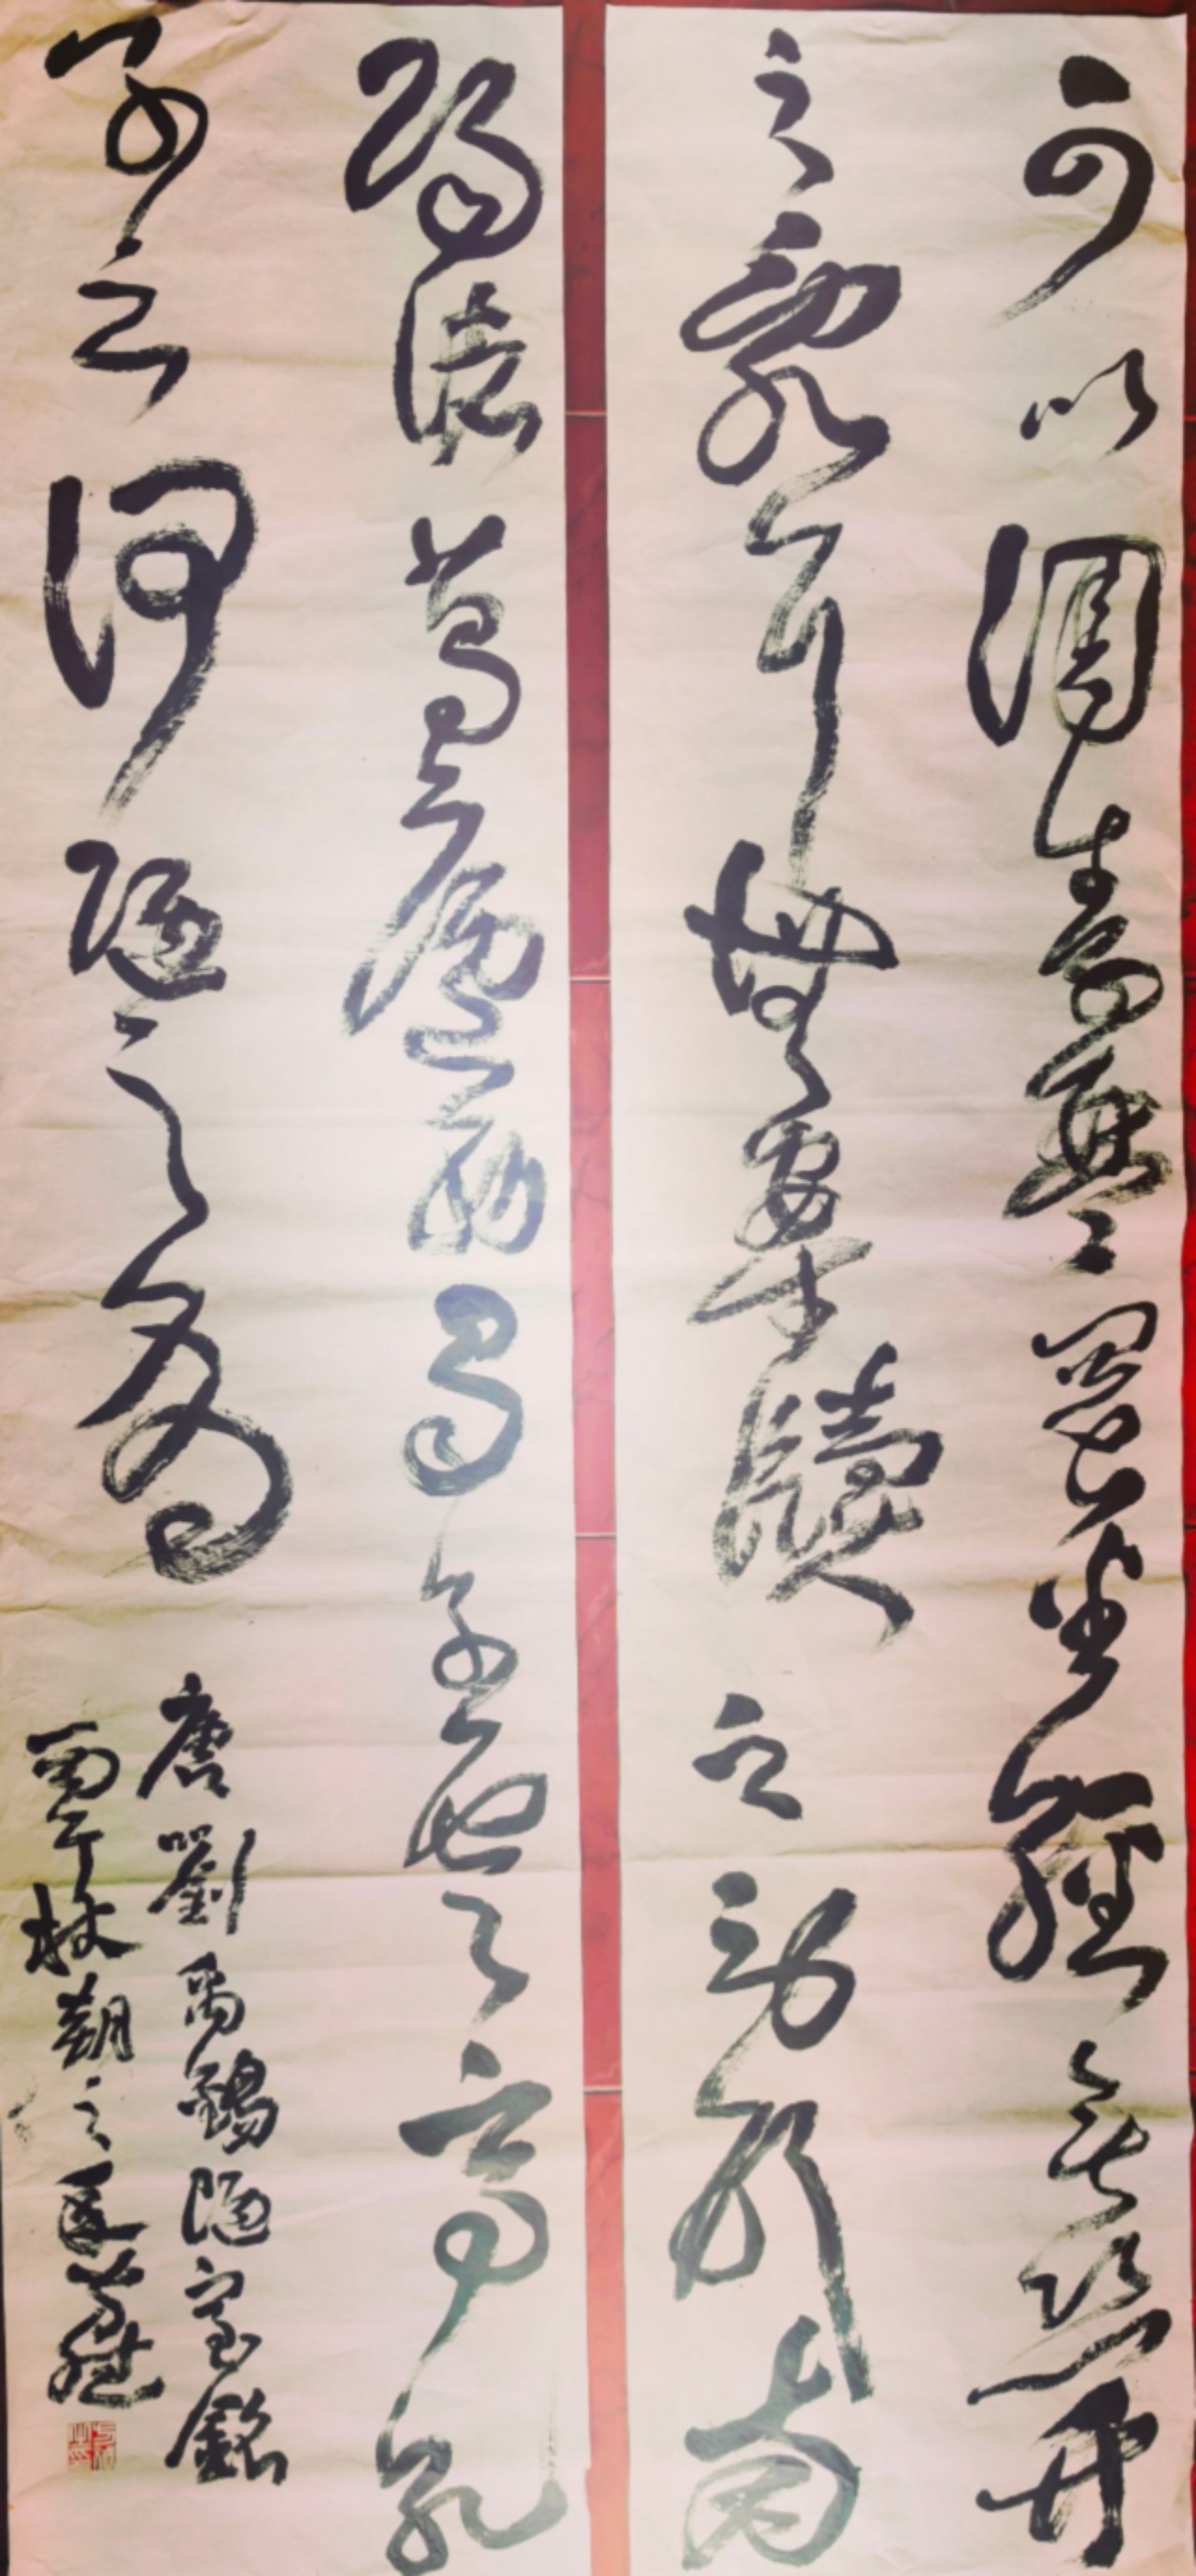 可以調素琴閱金經無絲竹
之亂耳無案牘之勞形南
陽諸葛廬西蜀子雲亭孔
子云何陋之有
唐劉禹錫陋室銘